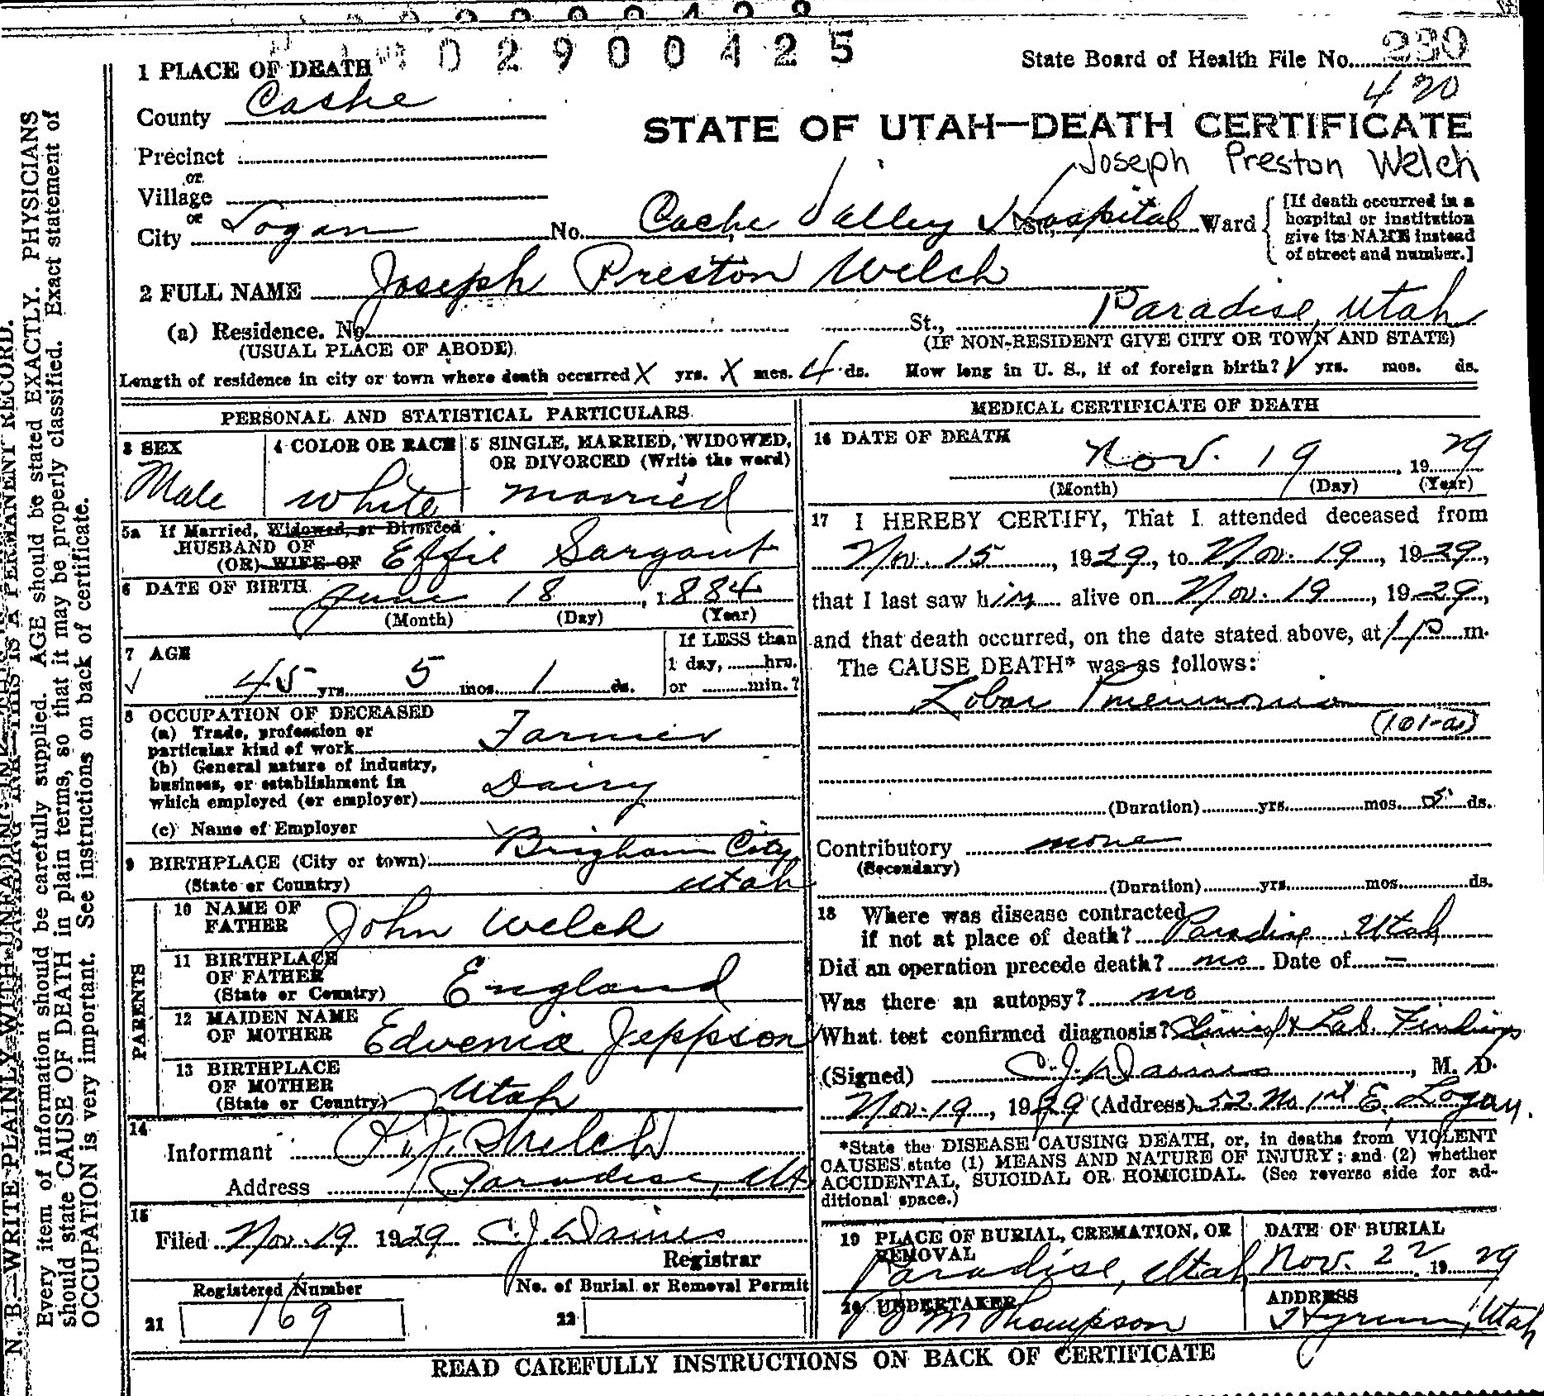 02900425
State Board of Health File No. 230
420
1 PLACE OF DEATH
County Cache
STATE OF UTAH—DEATH CERTIFICATE
Precinct
Joseph Preston Welch
or
Village
or
City Logan No. Cache Valley Hospital St., Ward
[If death occurred in a
hospital or institution
give its NAME instead
of street and number.]
2 FULL NAME Joseph Preston Welch
(a) Residence. No. St., Paradise, Utah
(USUAL PLACE OF ABODE) (IF NON-RESIDENT GIVE CITY OR TOWN AND STATE)
Length of residence in city or town where death occurred X yrs. X mos. 4 ds. How long in U. S., if of foreign birth? yrs. mos. ds.
PERSONAL AND STATISTICAL PARTICULARS
3 SEX 4 COLOR OR RACE 5 SINGLE, MARRIED, WIDOWED,
OR DIVORCED (Write the word)
Male white married
5a If Married, Widowed, or Divorced
HUSBAND OF
(OR) WIFE OF Effie Sargant
6 DATE OF BIRTH June 18, 1884
(Month) (Day) (Year)
7 AGE If LESS than
1 day, hrs.
45 yrs. 5 mos. 1 ds. or min.?
8 OCCUPATION OF DECEASED
(a) Trade, profession or
particular kind of work Farmer
(b) General nature of industry,
business, or establishment in
which employed (or employer) Dairy
(c) Name of Employer
9 BIRTHPLACE (City or town) Brigham City
(State or Country) Utah
PARENTS
10 NAME OF
FATHER John Welch
11 BIRTHPLACE
OF FATHER
(State or Country) England
12 MAIDEN NAME
OF MOTHER Edvenia Jeppson
13 BIRTHPLACE
OF MOTHER
(State or Country) Utah
14
Informant Welch
Address Paradise, Ut
15
Filed Nov. 19 1929 C. J. Daines
Registrar
Registered Number No. of Burial or Removal Permit
21 169 22
MEDICAL CERTIFICATE OF DEATH
16 DATE OF DEATH
Nov. 19, 1929
(Month) (Day) (Year)
17 I HEREBY CERTIFY, That I attended deceased from
Nov. 15, 1929, to Nov. 19, 1929,
that I last saw him alive on Nov. 19, 1929,
and that death occurred, on the date stated above, at 1 P m.
The CAUSE DEATH* was as follows:
Lobar Pneumonia
(101-a)
(Duration) yrs. mos. 5 ds.
Contributory none
(Secondary)
(Duration) yrs. mos. ds.
18 Where was disease contracted
if not at place of death? Paradise Utah
Did an operation precede death? no Date of —
Was there an autopsy? no
What test confirmed diagnosis? Clinical & Lab. Findings
(Signed) C. J. Daines, M. D.
Nov. 19, 1929 (Address) 52 No 1st E, Logan.
*State the DISEASE CAUSING DEATH, or, in deaths from VIOLENT
CAUSES state (1) MEANS AND NATURE OF INJURY; and (2) whether
ACCIDENTAL, SUICIDAL OR HOMICIDAL. (See reverse side for ad-
ditional space.)
19 PLACE OF BURIAL, CREMATION, OR
REMOVAL DATE OF BURIAL
Paradise, Utah Nov. 22 1929
20 UNDERTAKER ADDRESS
M Thompson Hyrum, Utah
READ CAREFULLY INSTRUCTIONS ON BACK OF CERTIFICATE
N. B.—WRITE PLAINLY WITH UNFADING INK—THIS IS A PERMANENT RECORD.
Every item of information should be carefully supplied. AGE should be stated EXACTLY. PHYSICIANS
should state CAUSE OF DEATH in plain terms, so that it may be properly classified. Exact statement of
OCCUPATION is very important. See instructions on back of certificate.